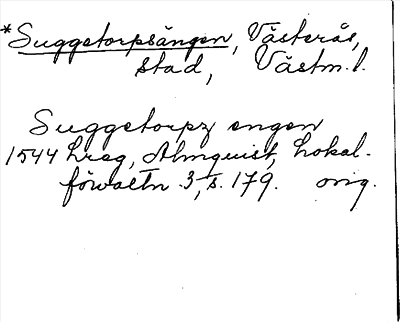 *Suggetorpsängen, Västerås,
stad, Västm.l.
Suggetorpz engen
1544 hreg, Almquist, Lokal-
förvaltn. 3, s. 179. orig.